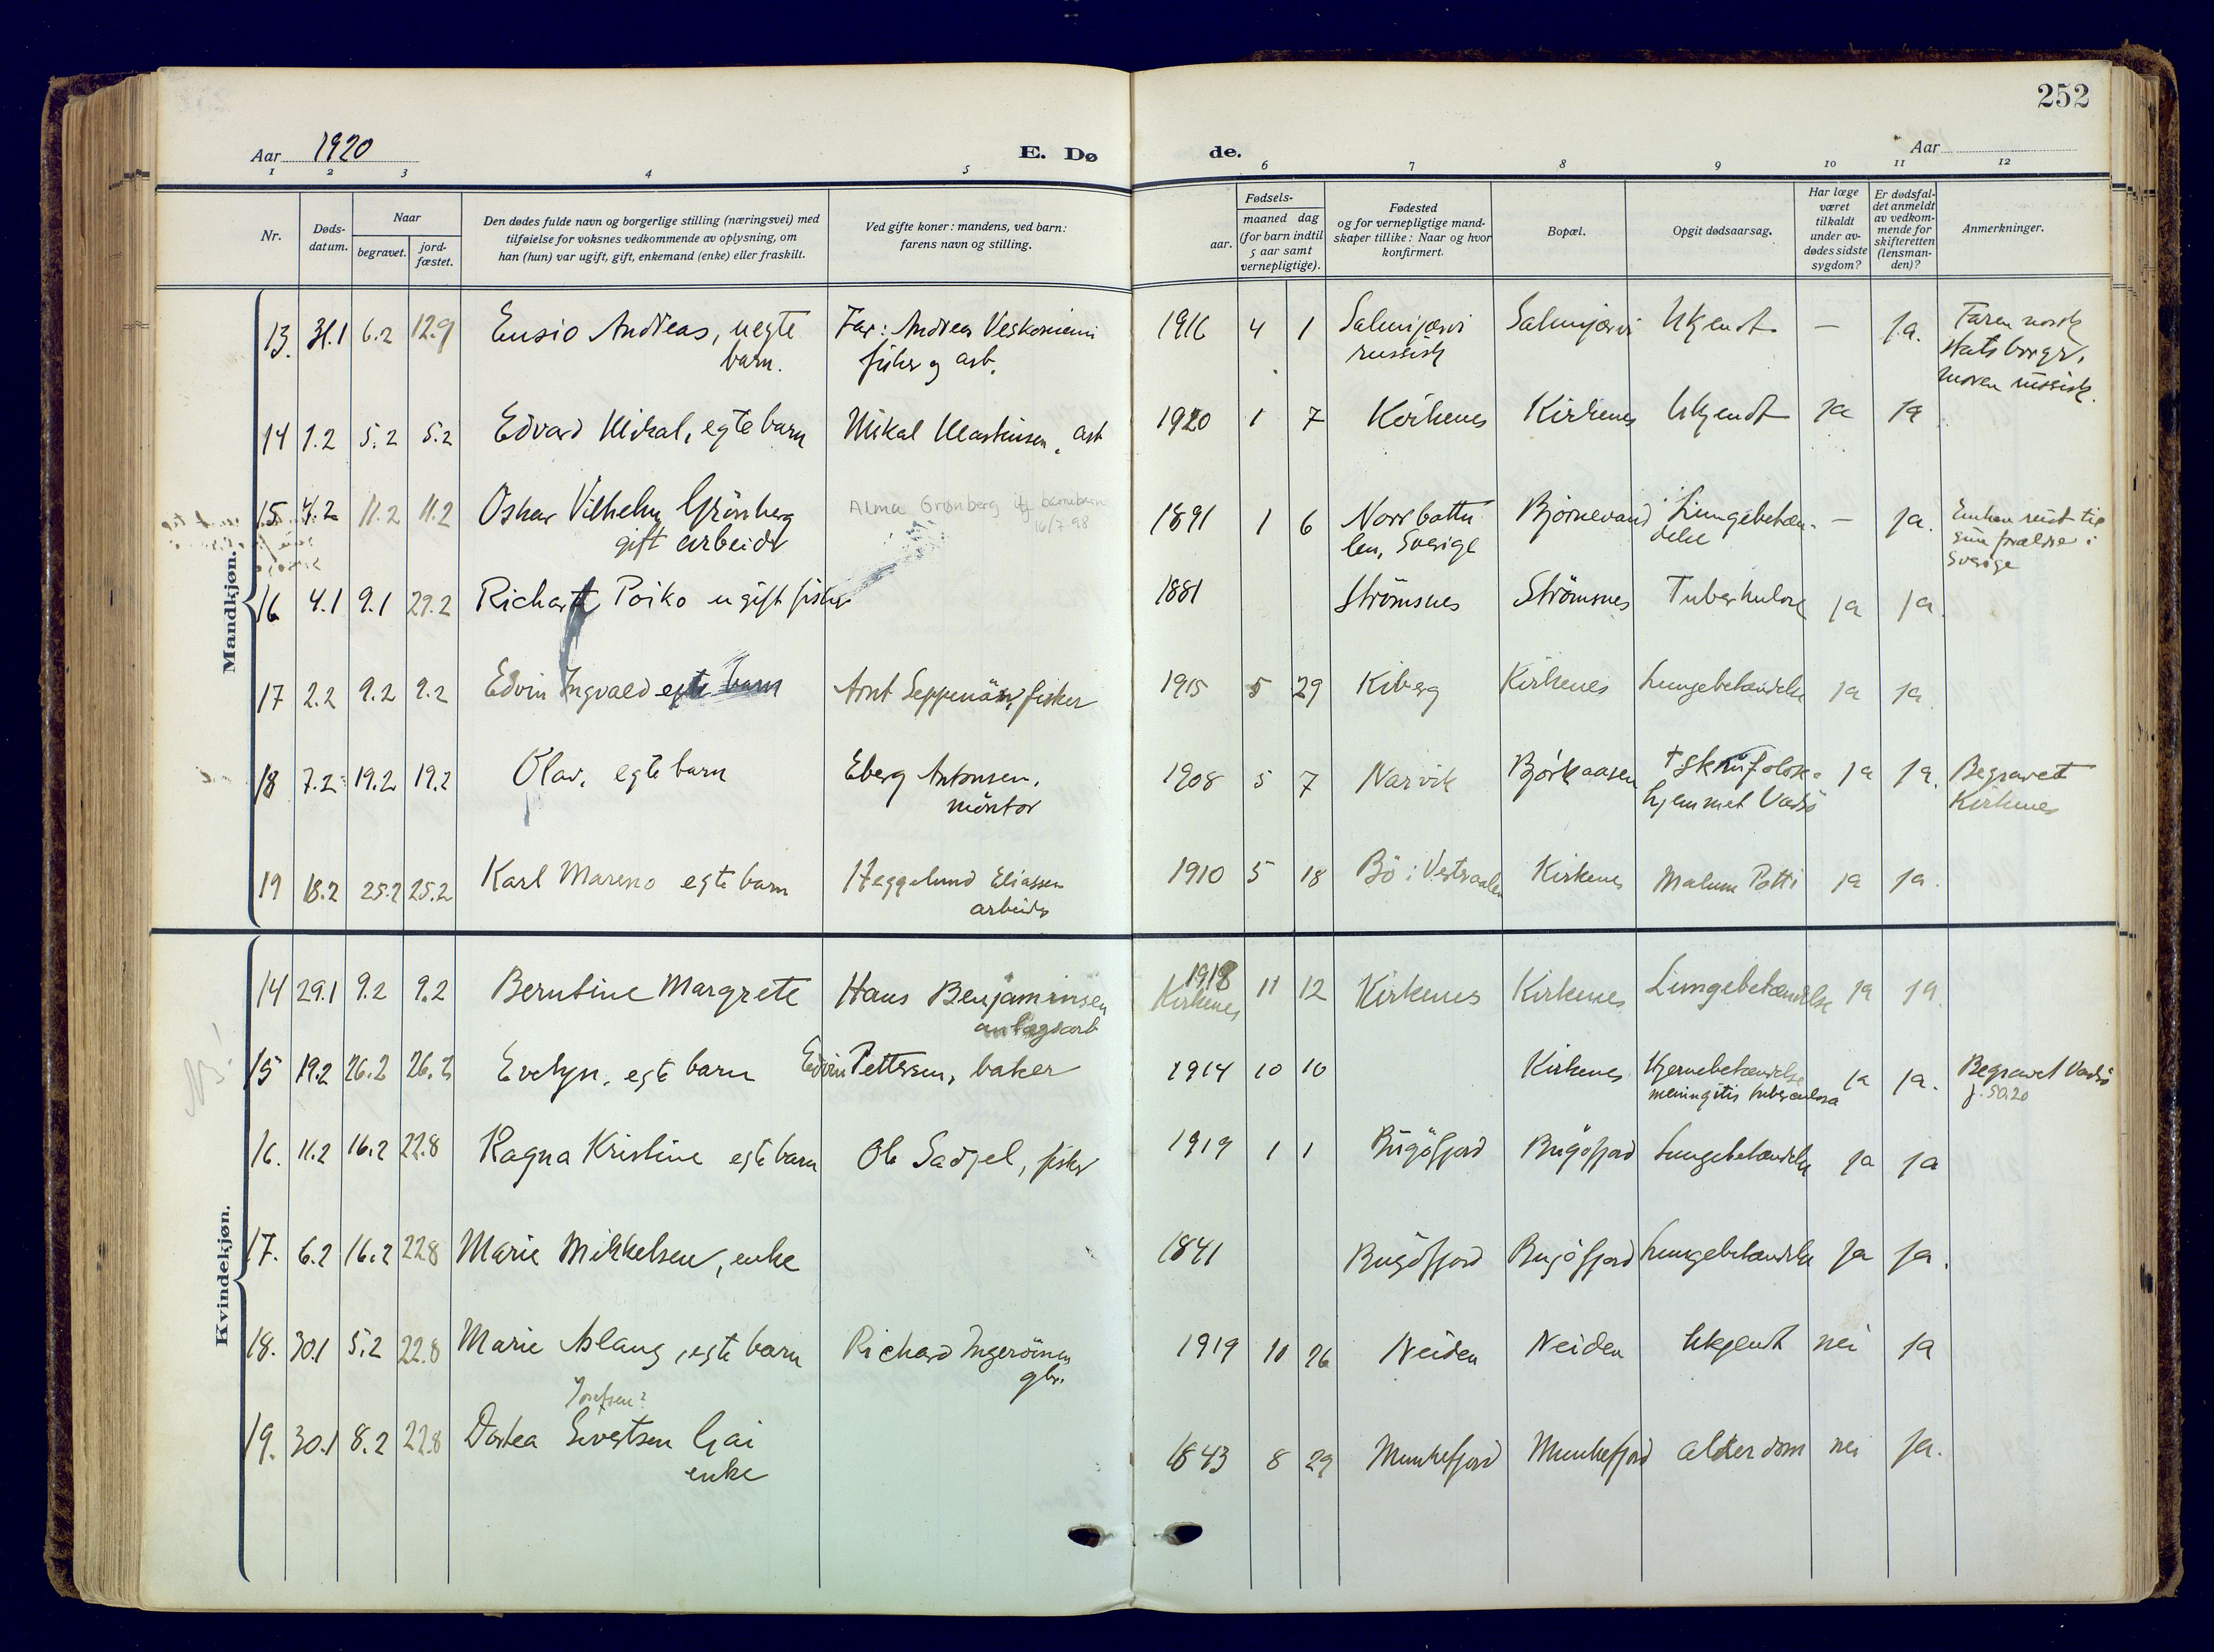 252
Aar 1920
E. Døde.
Aar
1 2 3 4 5 6 7 8 9 10 11 12
Nr.
Døds-
datum.
Naar
begravet.
jord-
fæstet.
Den dødes fulde navn og borgerlige stilling (næringsvei) med
tilføielse for voksnes vedkommende av oplysning, om
han (hun) var ugift, gift, enkemand (enke) eller fraskilt.
Ved gifte koner: mandens, ved barn:
farens navn og stilling.
Fødsels-
aar.
maaned dag
(for barn indtil
5 aar samt
vernepligtige).
Fødested
og for vernepligtige mand-
skaper tillike: Naar og hvor
konfirmert.
Bopæl.
Opgit dødsaarsag.
Har læge
været
tilkaldt
under av-
dødes sidste
sygdom?
Er dødsfal-
det anmeldt
av vedkom-
mende for
skifteretten
(lensman-
den)?
Anmerkninger.
Mandkjøn.
13. 31.1 6.2 12.9 Ensio Andreas, uegte Far: Andreas Veskoniemi 1916 4 1 Salmijærvi Salmijærvi Ukjendt – ja. Faren norsk
barn. fisker og arb. russisk statsborger,
moren russisk.
14 1.2 5.2 5.2 Edvard Mikal, egte barn Mikal Martinsen, arb 1920 1 7 Kirkenes Kirkenes Ukjendt ja ja
15 4.2 11.2 11.2 Oskar Vilhelm Grönberg Alma Grønberg barnebarn 1891 1 6 Norrbotten Björnevand Lungebetæn- – ja. Enken reist til
gift arbeider 16/7.98 len, Sverige delse sine forældre i
Sverige
16 4.1 9.1 29.2 Richart Poiko ugift fisker 1881 Strömsnes Strömsnes Tuberkulose ja ja.
17 2.2 9.2 9.2 Edvin Ingvald egte barn Arnt Seppenäs, fisker 1915 5 29 Kiberg Kirkenes Lungebetændelse ja ja.
18 7.2 19.2 19.2 Olav, egte barn Eberg Antonsen, 1908 5 7 Narvik Björkaasen † Skrufolose- ja ja. Begravet
montör hjemmet Vadsö Kirkenes
19 18.2 25.2 25.2 Karl Mareno egte barn Heggelund Eliassen 1910 5 18 Bö i Vestraalen Kirkenes Malum Potti ja ja.
arbeider
Kvindekjøn.
14 29.1 9.2 9.2 Berntine Margrete Hans Benjaminsen 1918 11 12 Kirkenes Kirkenes Lungebetændelse ja ja.
anlægsarb Kirkenes
15 19.2 26.2 26.2 Evelyn, egte barn Edvin Pettersen, baker 1914 10 10 Kirkenes Hjernebetændelse ja ja. Begravet Vadsö
meningitis tuberculosa j. 50.20
16. 11.2 16.2 22.8 Ragna Kristine egte barn Ole Sadjel, fisker 1919 1 1 Bugöfjord Bugöfjord Lungebetændelse ja ja
17. 6.2 16.2 22.8 Marie Mikkelsen, enke 1841 Bugöfjord Bugöfjord Lungebetændelse ja ja.
18. 30.1 5.2 22.8 Marie Aslaug, egte barn Richard Ingeröinen 1919 10 26 Neiden Neiden Ukjendt nei ja
gbr.
Josefsen?
19. 30.1 8.2 22.8 Dortea Sivertsen Gjai 1843 8 29 Munkefjord Munkefjord alderdom nei ja.
enke